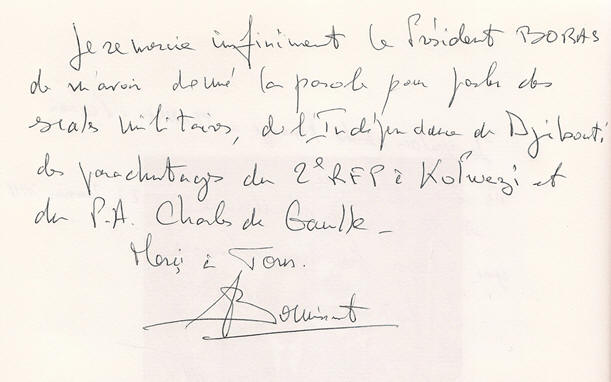 Je remercie infiniment le Président BORAS
de m'avoir donné la parole pour parler des
scals militaires, de l'Indépendance de Djibouti
des parachutages du 2e REP à Kolwezi et
du P.A. Charles de Gaulle_
Merci à Tous.